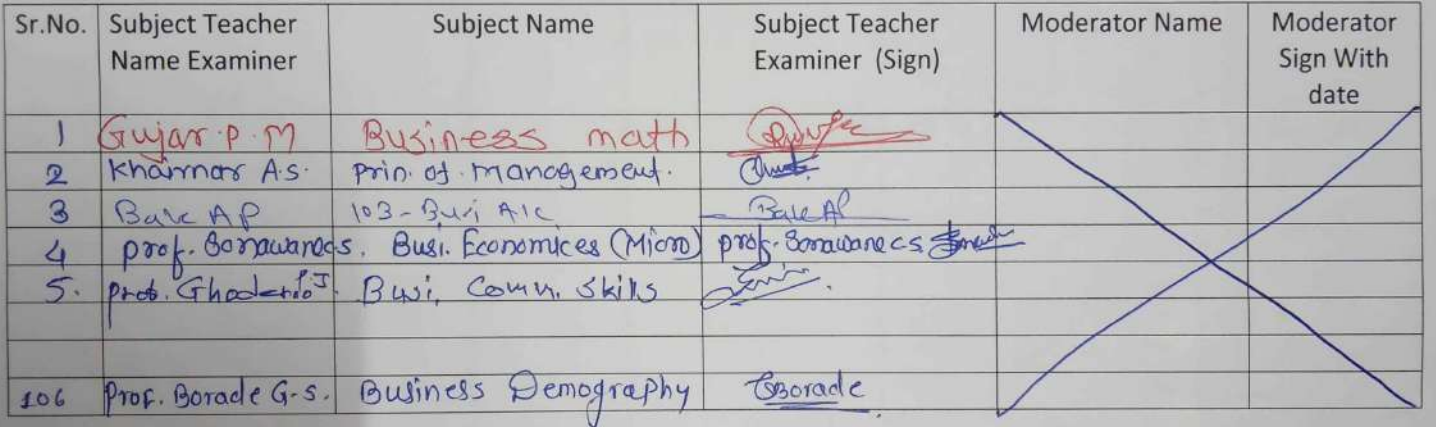 Sr.No. Subject Teacher Name Examiner Subject Name Subject Teacher Examiner (Sign) Moderator Name Moderator Sign With date
1 Gujar.P.M Business math
2 Khairnar A.S. prin. of. management.
3 Bale AP 103-Busi A/c Bale AP
4 prof. Sonawane c s. Busi. Economices (Micro) prof. Sonawane c s.
5. prof. Busi. Comm. Skills
106 Prof. Borade G.S. Business Demography GSBorade